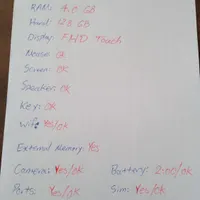 RAM: 4.0 GB
Hard: 128 GB
Display: FHD Touch
Mouse: OK
Screen: OK
Speaker: OK
Key: OK
Wife Yes/ok
External Memory: Yes
Camera: Yes/ok Battery: 2-00/ok
Ports: Yes/ok Sim: Yes/ok